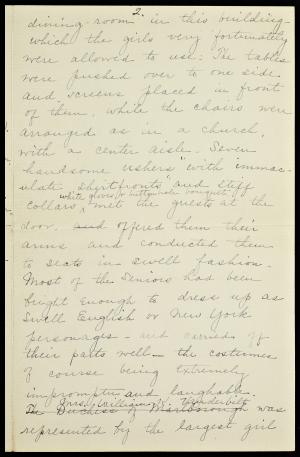 2.
dining-room in this building
which the girls very fortunately
were allowed to use. The tables
were pushed over to one side
and screens placed in front
of them, while the chairs were
arranged as in a church,
with a center aisle. Seven
handsome ushers with immac-
ulate shirtfronts and stiff
white gloves or buttonhole bouquets
collars, met the guests at the
door and offered them their
arms and conducted them
to seats in swell fashion.
Most of the Seniors had been
bright enough to dress up as
swell English or New York
personages - and carried off
their parts well - the costumes
of course being extremely
impromptu and laughable.
Mrs. William K. Vanderbilt
The Duchess of Marlborough was
represented by the largest girl